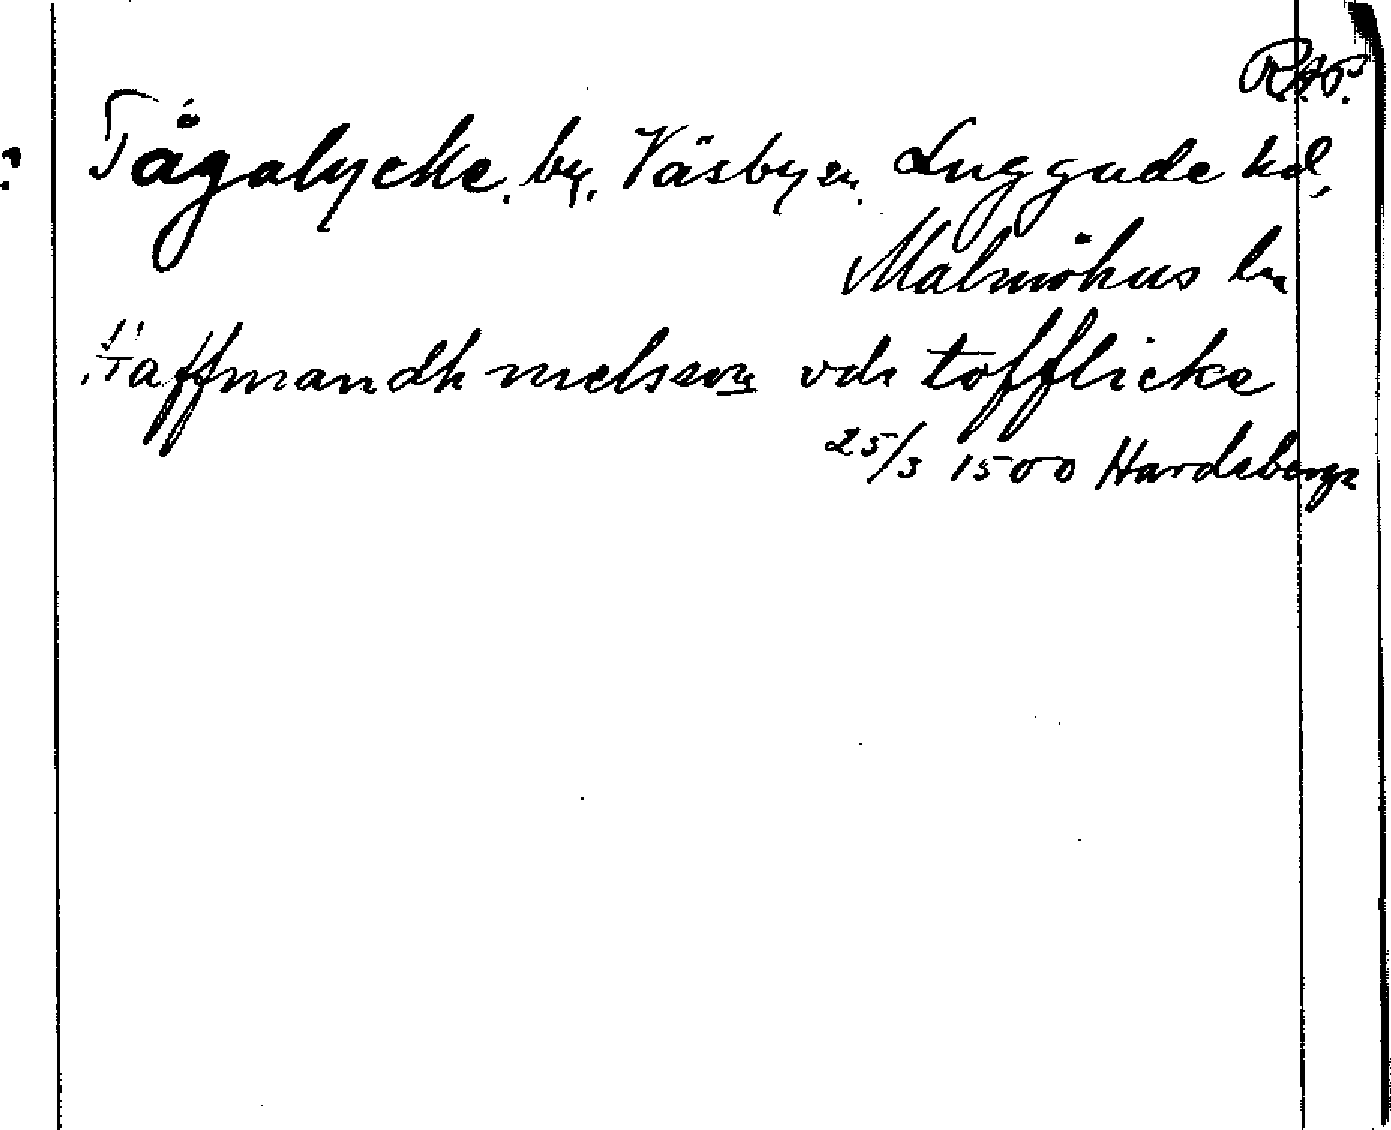 R.A.P.
? Tågalycke. by. Väsby sn. Luggude hd,
Malmöhus ln
Haffmandh nielsson vdi tofflicke
25/3 1500 Hardeberga